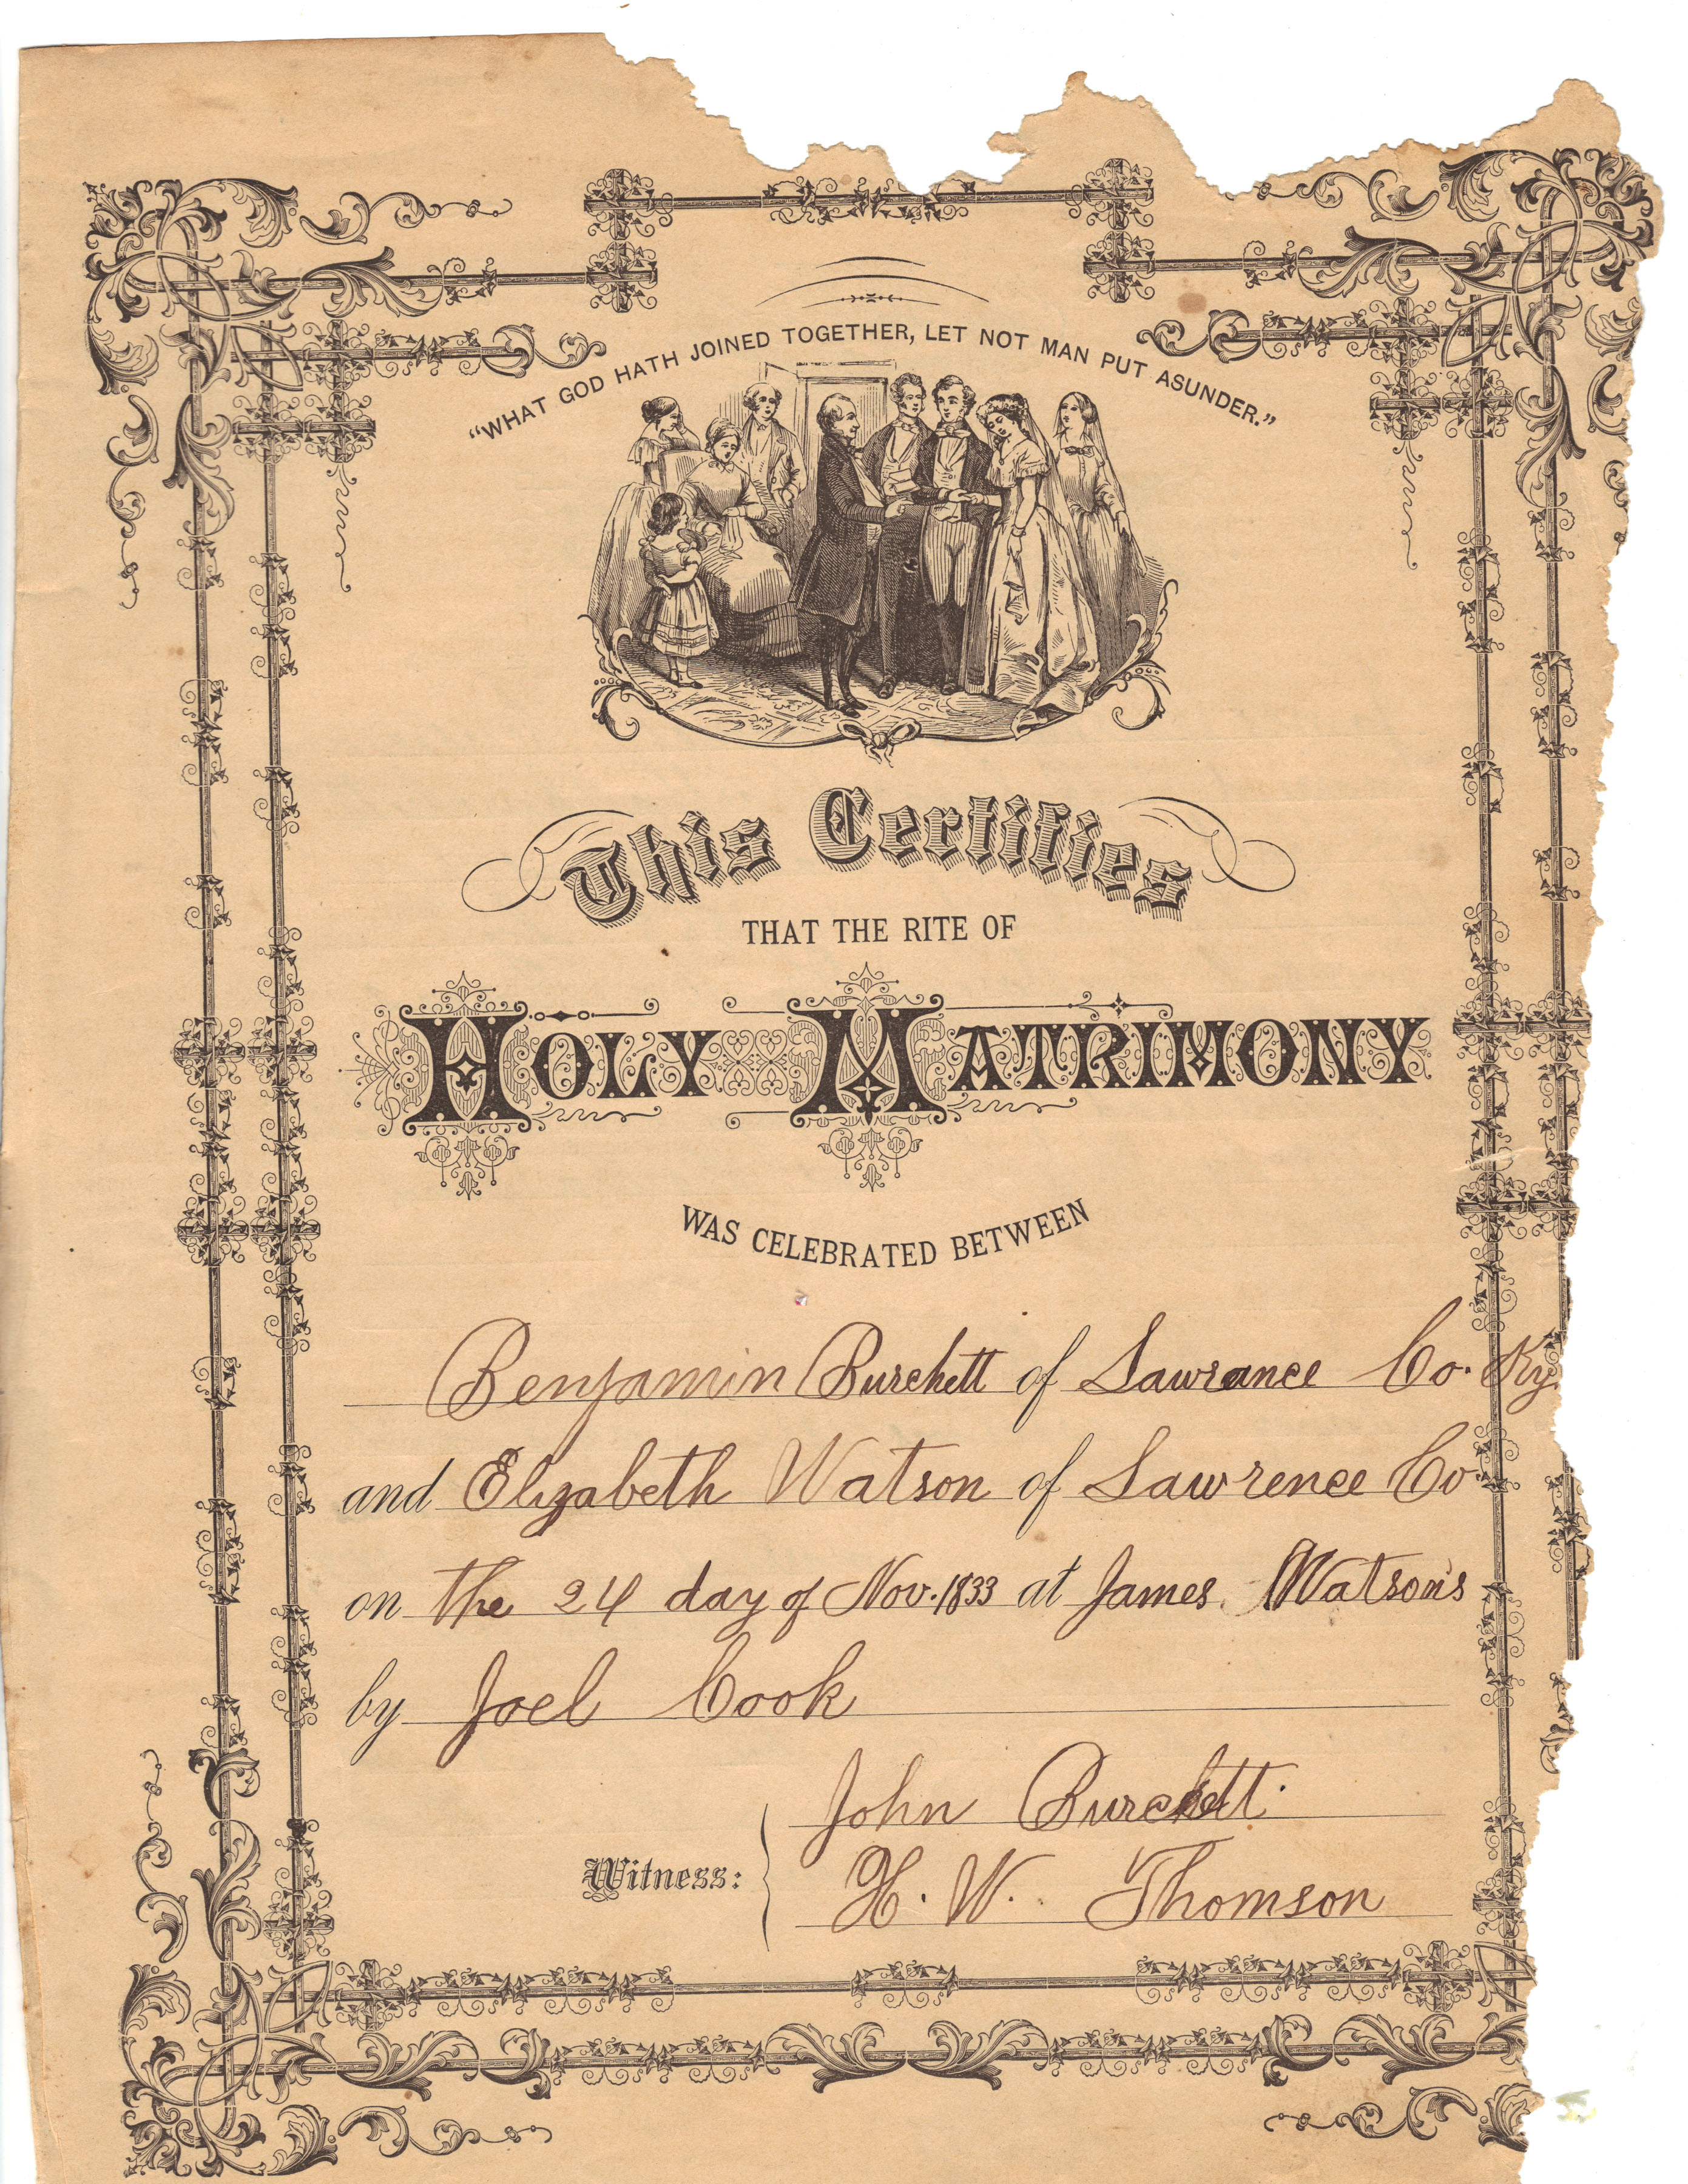 “WHAT GOD HATH JOINED TOGETHER, LET NOT MAN PUT ASUNDER.”
This Certifies
THAT THE RITE OF
HOLY MATRIMONY
WAS CELEBRATED BETWEEN
Benjamin Burchett of Lawrance Co. Ky.
and Elizabeth Watson of Lawrence Co.
on the 24 day of Nov. 1833 at James Watson's
by Joel Cook
John Burchett.
Witness:
H. W. Thomson